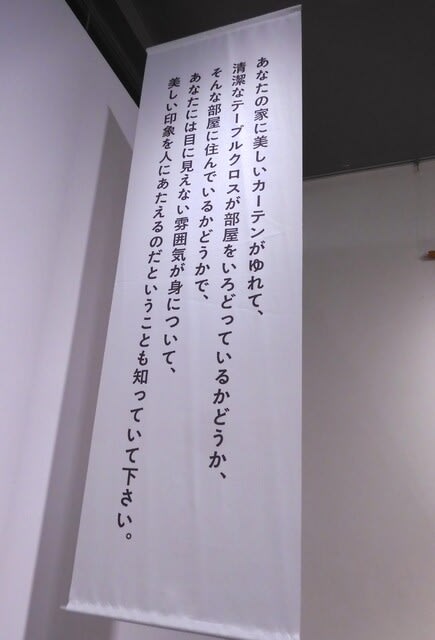 あなたの家に美しいカーテンがゆれて、
清潔なテーブルクロスが部屋をいろどっているかどうか、
そんな部屋に住んでいるかどうかで、
あなたには目に見えない雰囲気が身について、
美しい印象を人にあたえるのだということも知っていて下さい。